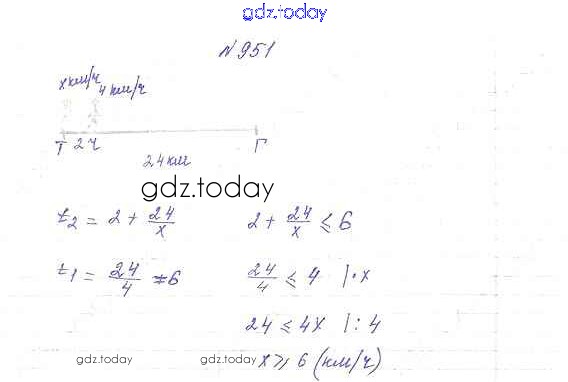 gdz.today
№951
x км/ч 4 км/ч
Т 2 ч Г
24 км
gdz.today
t₂ = 2 + 24/x 2 + 24/x ⩽ 6
t₁ = 24/4 = 6 24/4 ⩽ 4 |·x
24 ⩽ 4x |: 4
gdz.today gdz.today x ⩾ 6 (км/ч)